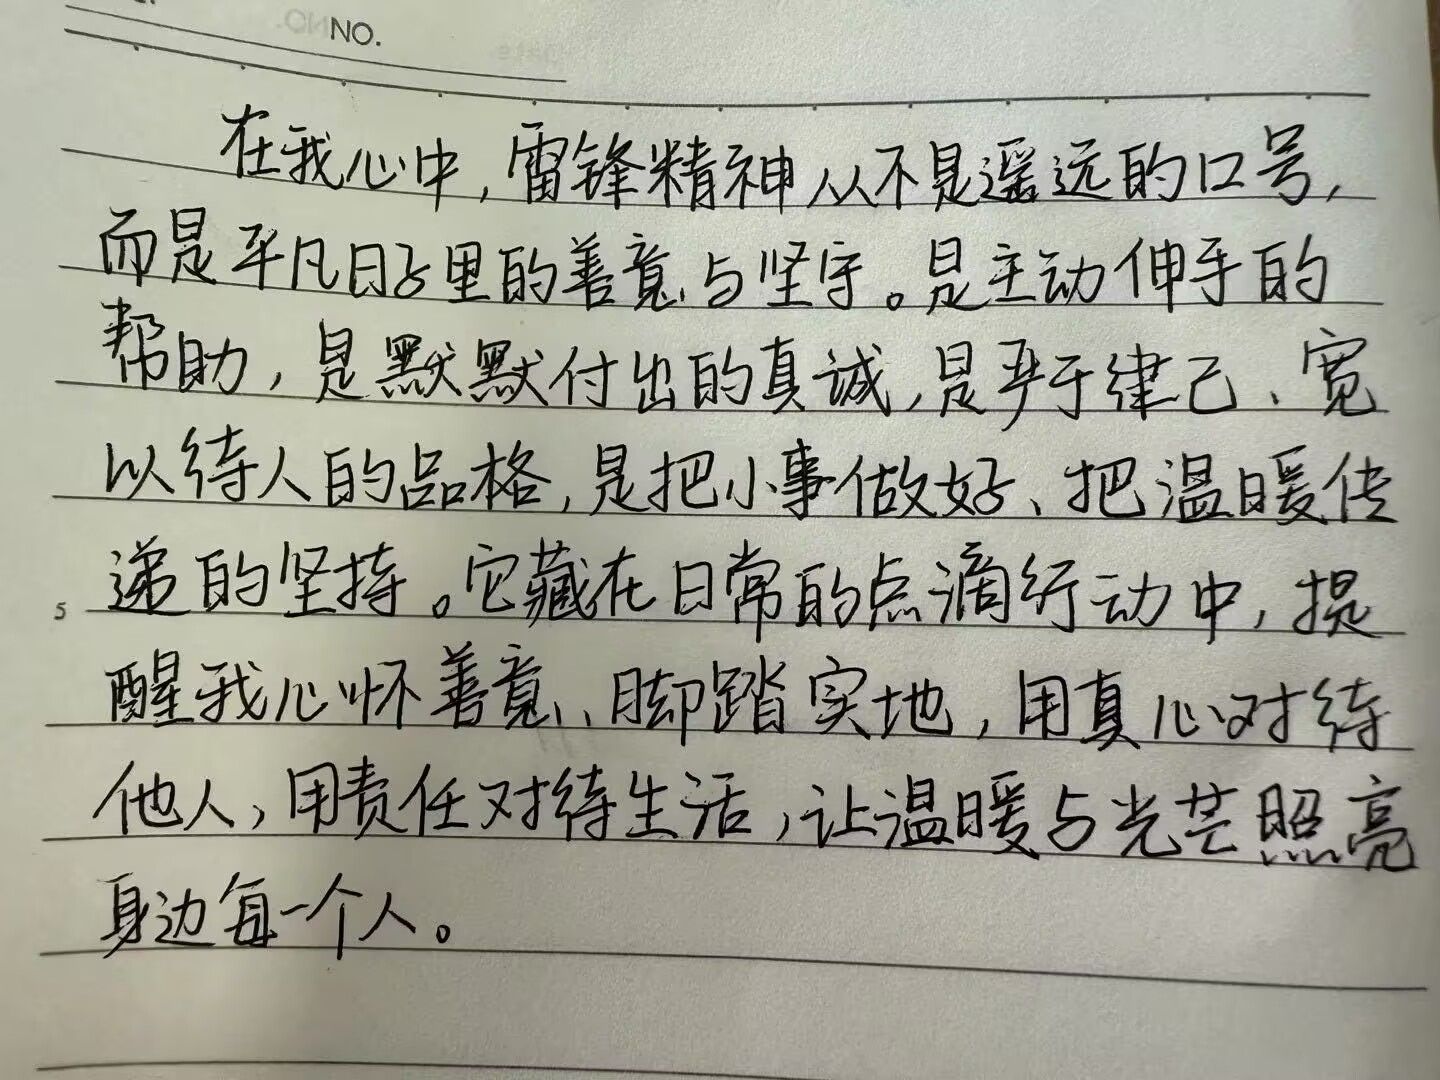 NO.
在我心中,雷锋精神从不是遥远的口号,
而是平凡日子里的善意与坚守。是主动伸手的
帮助,是默默付出的真诚,是严于律己、宽
以待人的品格,是把小事做好、把温暖传
递的坚持。它藏在日常的点滴行动中,提
5
醒我心怀善意、脚踏实地,用真心对待
他人,用责任对待生活,让温暖与光芒照亮
身边每一个人。